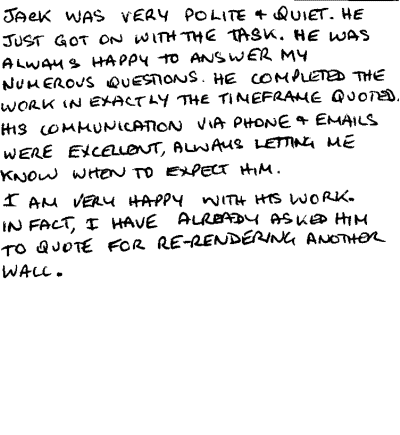 JACK WAS VERY POLITE & QUIET. HE
JUST GOT ON WITH THE TASK. HE WAS
ALWAYS HAPPY TO ANSWER MY
NUMEROUS QUESTIONS. HE COMPLETED THE
WORK IN EXACTLY THE TIMEFRAME QUOTED.
HIS COMMUNICATION VIA PHONE & EMAILS
WERE EXCELLENT, ALWAYS LETTING ME
KNOW WHEN TO EXPECT HIM.
I AM VERY HAPPY WITH HIS WORK.
IN FACT, I HAVE ALREADY ASKED HIM
TO QUOTE FOR RE-RENDERING ANOTHER
WALL.